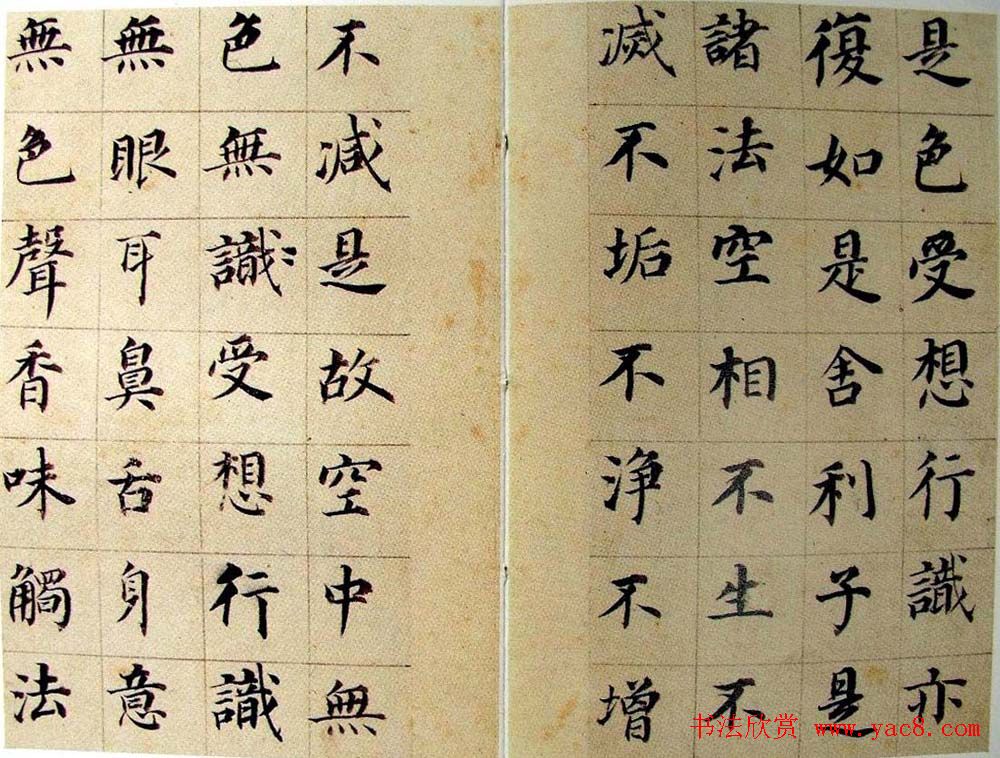 是色受想行識亦
復如是舍利子是
諸法空相不生不
滅不垢不淨不增
不減是故空中無
色無識受想行識
無眼耳鼻舌身意
無色聲香味觸法
书法欣赏 www.yac8.com